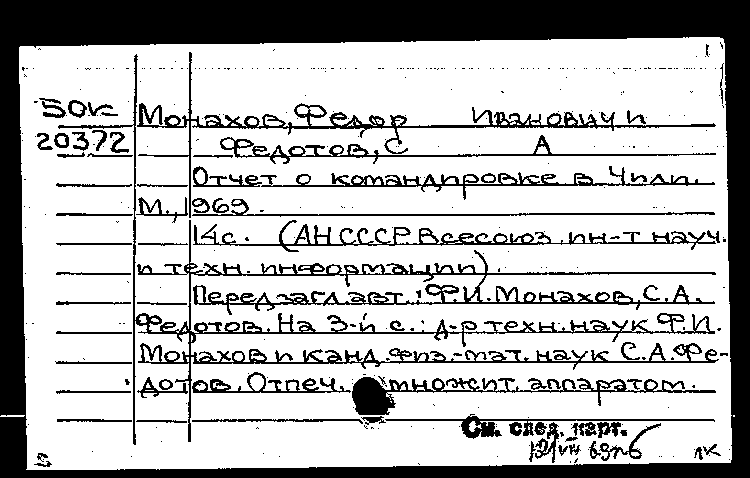 1
50к Монахов, Федор Иванович и
20372 Федотов, С А
Отчет о командировке в Чили.
М., 1969.
14с. (АН СССР. Всесоюз. ин-т науч.
и техн. информации).
Перед загл. авт.: Ф.И. Монахов, С.А.
Федотов. На 3-й с.: д-р техн. наук Ф.И.
Монахов и канд. физ.-мат. наук С.А. Фе-
дотов. Отпеч. множит. аппаратом.
См. след. карт.
лк